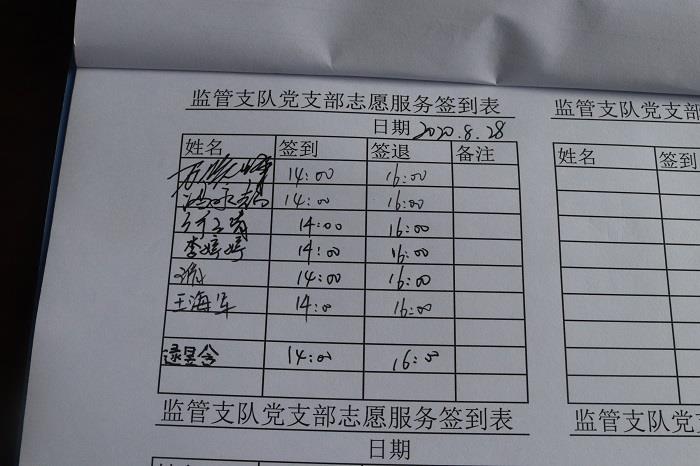 监管支队党支部志愿服务签到表
日期 2020.8.28
姓名 签到 签退 备注
14:00 16:00
14:00 16:00
14:00 16:00
李婷婷 14:00 16:00
14:00 16:00
王海军 14:0 16:00
逯昱含 14:00 16:0
监管支队党支部志愿服务签到表
日期
监管支队党支部
姓名 签到
监管支队党支